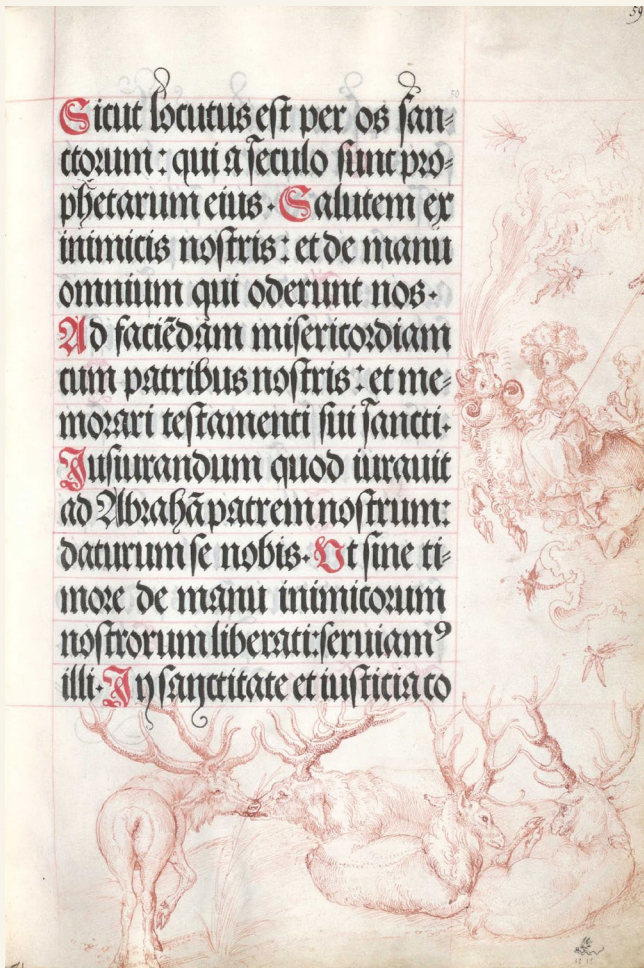 59
Sicut locutus est per os san⸗
ctorum: qui a seculo sunt pro⸗
phetarum eius. Salutem ex
inimicis nostris: et de manu
omnium qui oderunt nos.
Ad faciēdam misericordiam
cum patribus nostris: et me⸗
morari testamenti sui sancti.
Jusiurandum quod iurauit
ad Abrahā patrem nostrum:
daturum se nobis. Ut sine ti⸗
more de manu inimicorum
nostrorum liberati: seruiamꝰ
illi. In sanctitate et iusticia co